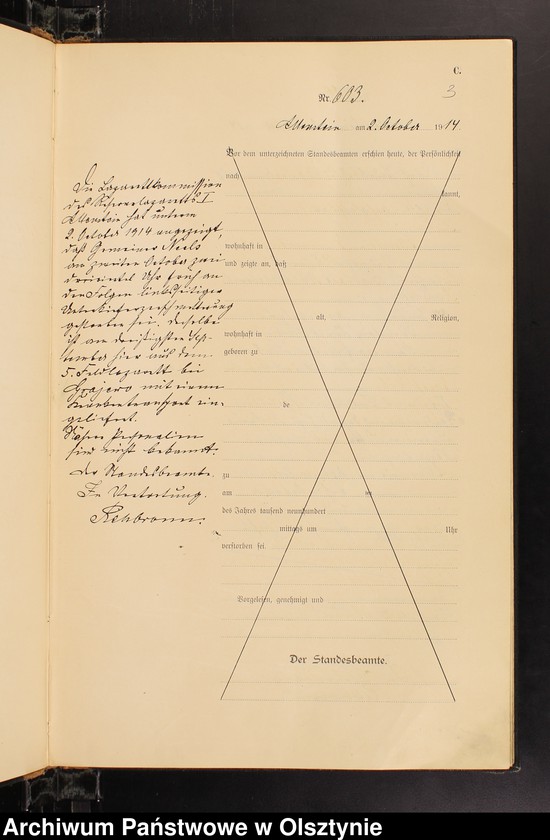 C.
3
Nr. 603.
Allenstein am 2. October 1914
Vor dem unterzeichneten Standesbeamten erschien heute, der Persönlichkeit
nach
kannt,
wohnhaft in
und zeigte an, daß
alt, Religion,
wohnhaft in
geboren zu
de
zu
am ten
des Jahres tausend neunhundert
mittags um Uhr
verstorben sei
Vorgelesen, genehmigt und
Der Standesbeamte.
Die Lazarettkommission
des Reservelazaretts I
Allenstein hat unterm
2. October 1914 angezeigt,
daß Gemeiner
am zweiten October zwei
dreiviertel Uhr früh an
den Folgen linksseitiger
Unterkieferzerschmetterung
gestorben sei. Derselbe
ist am dreißigsten Sep-
tember hier aus dem
5. Feldlazarett bei
Grajewo mit einem
Krankentransport ein-
geliefert.
Nähere Personalien
sind nicht bekannt.
Der Standesbeamte.
In Vertretung.
Rehbronn.
Archiwum Państwowe w Olsztynie